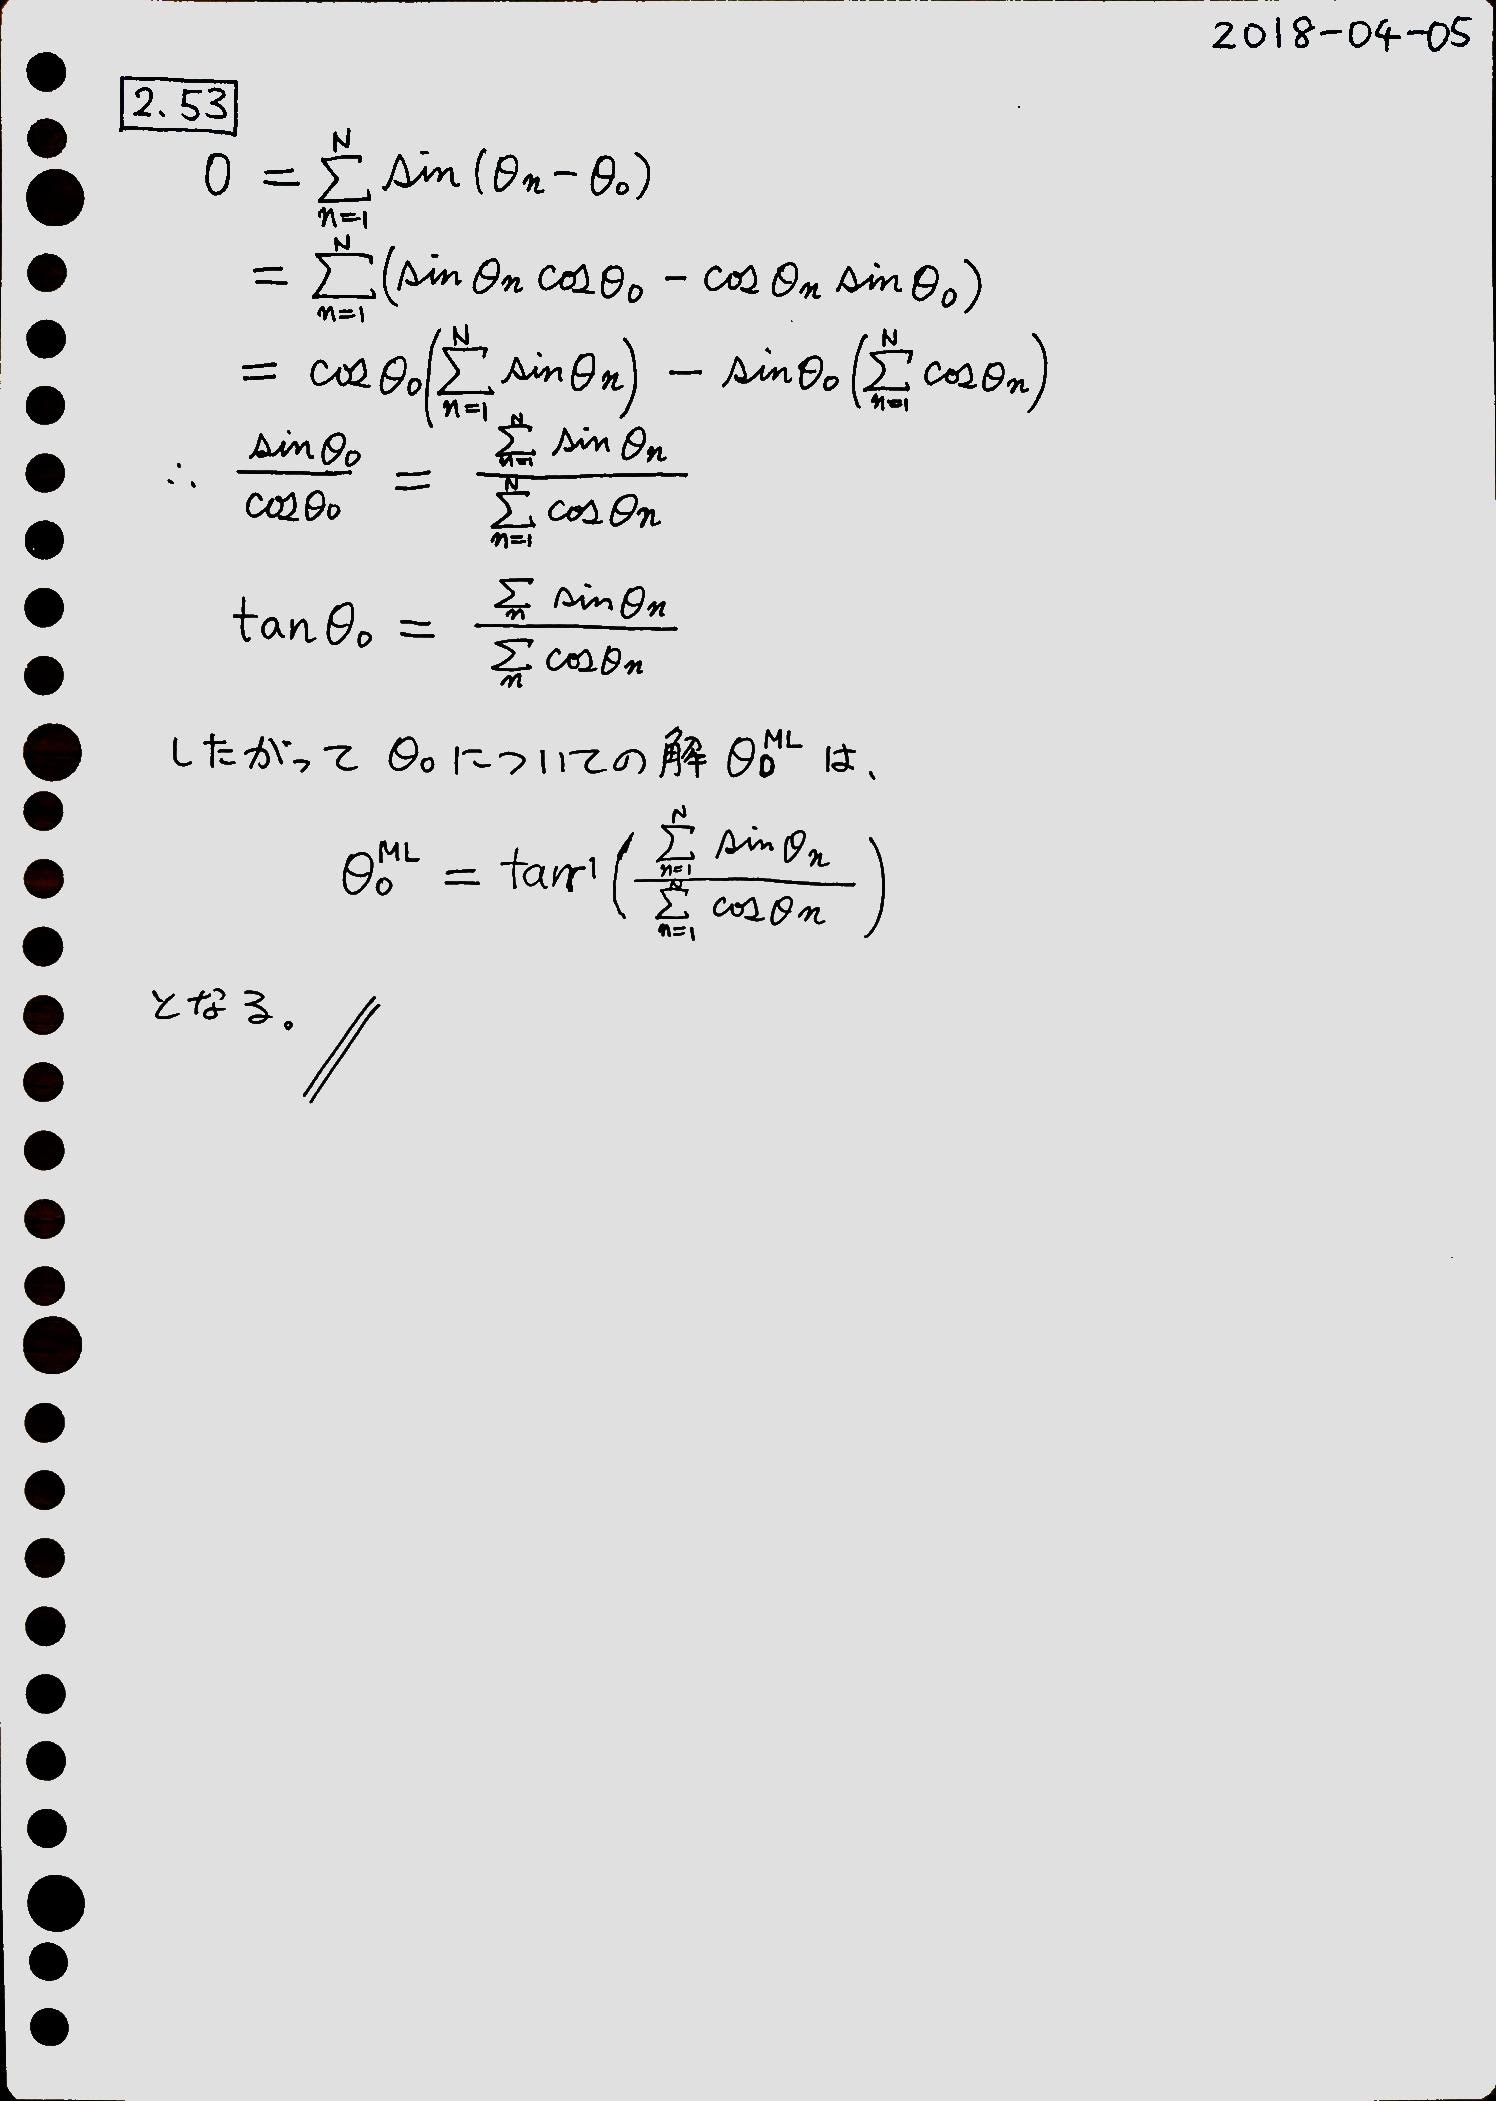 2018-04-05
2.53
0 = \sum_{n=1}^{N} sin(θn − θ0)
= \sum_{n=1}^{N} (sin θn cos θ0 − cos θn sin θ0)
= cos θ0 (\sum_{n=1}^{N} sin θn) − sin θ0 (\sum_{n=1}^{N} cos θn)
∴ \frac{sin θ0}{cos θ0} = \frac{\sum_{n=1}^{N} sin θn}{\sum_{n=1}^{N} cos θn}
tan θ0 = \frac{\sum_{n} sin θn}{\sum_{n} cos θn}
したがって θ0 についての解 θ0^{ML} は、
θ0^{ML} = tan^{-1} (\frac{\sum_{n=1}^{N} sin θn}{\sum_{n=1}^{N} cos θn})
となる。